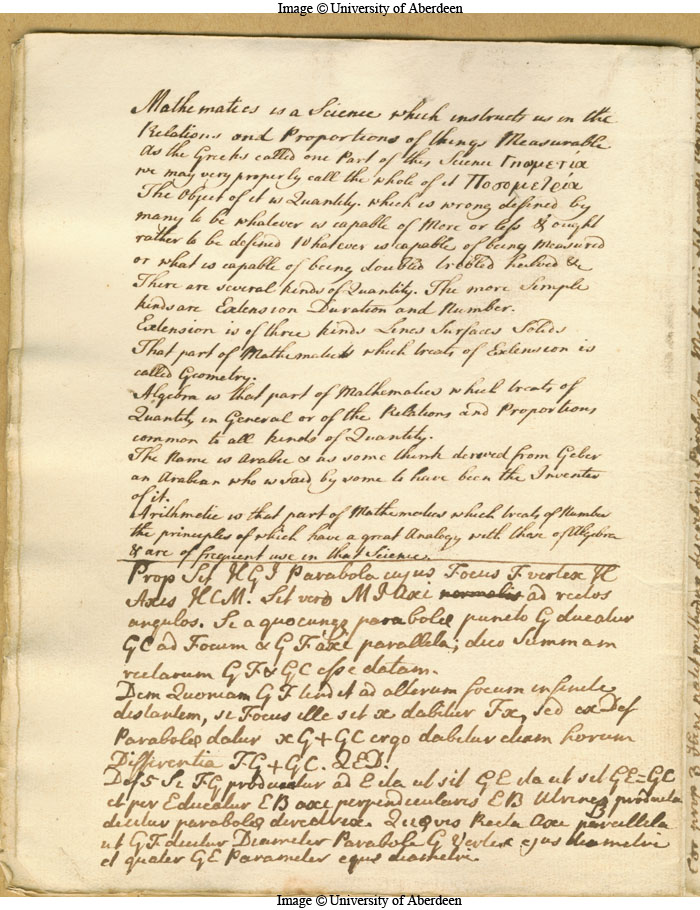 Image © University of Aberdeen
Mathematics is a Science which instructs us in the
Relations and Proportions of things Measurable
As the Greeks called one Part of this Science Γηομετρία
we may very properly call the whole of it Ποσομετρία
The Object of it is Quantity. which is wrong defined by
many to be whatever is capable of More or less & ought
rather to be defined Whatever is capable of being measured
or what is capable of being doubled trebled halved &c
There are several kinds of Quantity. The more Simple
kinds are Extension Duration and Number.
Extension is of three kinds Lines Surfaces Solids
That part of Mathematicks which treats of Extension is
called Geometry.
Algebra is that part of Mathematics which treats of
Quantity in General or of the Relations and Proportions
common to all kinds of Quantity.
The Name is Arabic & as some think derived from Geber
an Arabian who is said by some to have been the Inventer
of it.
Arithmetic is that part of Mathematics which treats of Number
the principles of which have a great Analogy with those of Algebra
& are of frequent use in that Science.
Prop Sit HGI Parabola cujus Focus F vertex H
Axis HCM. Sit vero MI axi normalis ad rectos
angulos. Si a quocunqe parabolæ puncto G ducatur
GC ad Focum & GF axi parallela; dico Summam
rectarum GF & GC esse datam.
Dem Quoniam GF tendit ad alterum focum infinite
distantem, si Focus ille sit x dabitur Fx, sed ex Def
Parabolæ datur xG+GC ergo dabitur etiam horum
Differentia FG+GC. QED.
Def 5 Si FG producatur ad E ita ut sit GE ita ut sit GE=GC
et per E ducatur EB axi perpendicularis EB Utrinqe producta
dicitur parabolæ directrix. Quævis Recta Axi parallela
ut GF dicitur Diameter Parabolæ G Vertex ejus diametri
et quater GE Parameter ejus diametri.
Image © University of Aberdeen